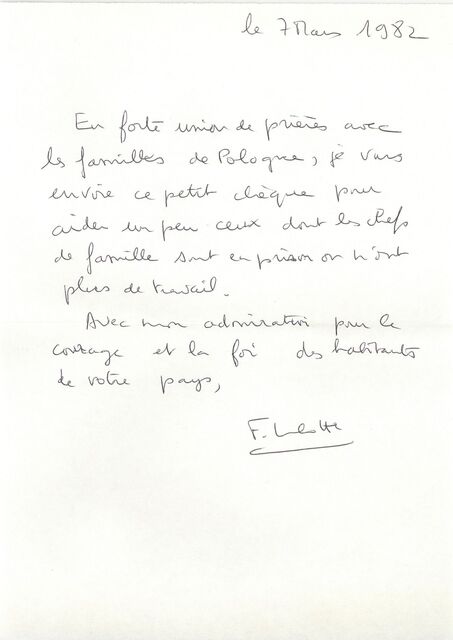 le 7 Mars 1982
En forte union de prières avec
les familles de Pologne, je vous
envoie ce petit chèque pour
aider un peu ceux dont les chefs
de famille sont en prison ou n'ont
plus de travail.
Avec mon admiration pour le
courage et la foi des habitants
de votre pays,
F.